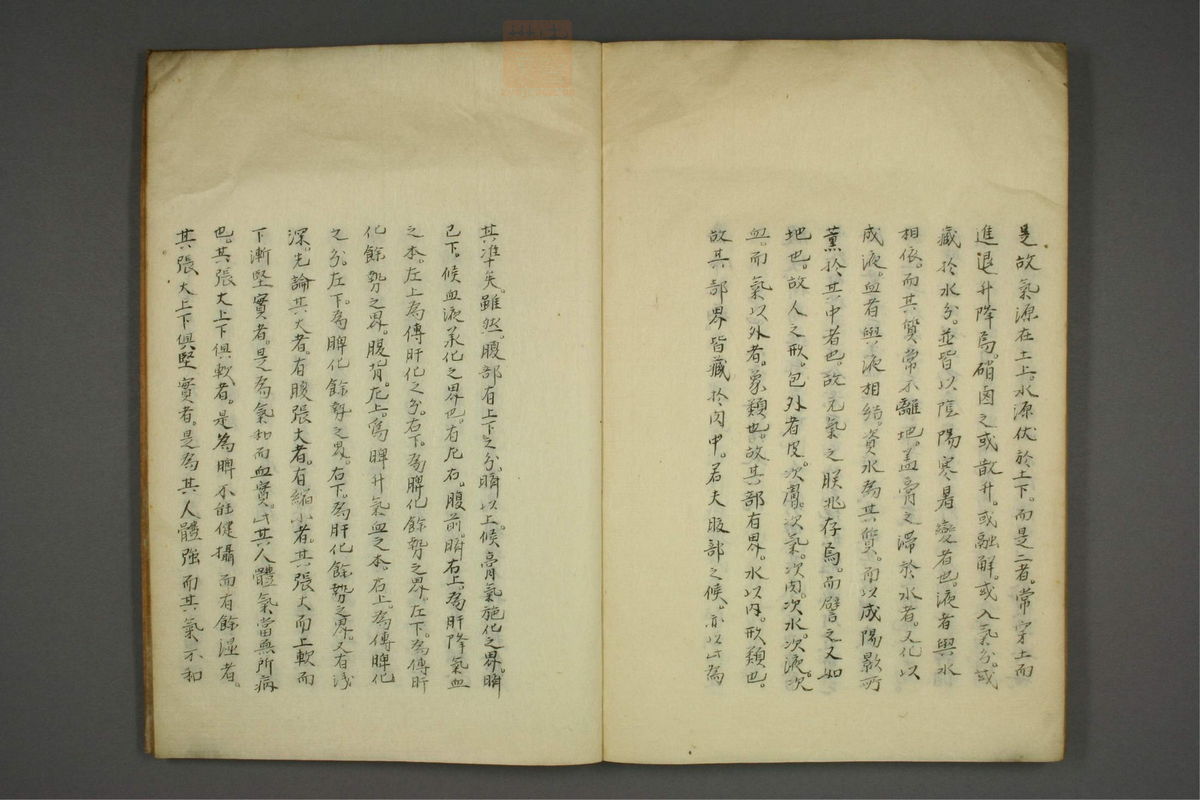 是故氣源在土上。水源伏於土下。而是二者。常穿土而
進退升降焉。硝鹵之或散升。或融解。或入氣分。或
藏於水分。並皆以陰陽寒暑變者也。液者與水
相依。而其質常不離地。蓋膏之滯於水者。又化以
成液。血者與液相結。資水為其質。而以成陽影所
薰於其中者也。故元氣之朕兆存焉。而譬之又如
地也。故人之形。包外者皮。次膚。次氣。次肉。次水。次液。次
血。而氣以外者。象類也。故其部有界。水以内。形類也。
故其部界皆藏於肉中。若夫腹部之候。亦以此為
其準矣。雖然。腹部有上下之分。臍以上。候膏氣施化之界。臍
已下。候血液承化之界也。有左右。腹前。臍右上。為肝降氣血
之本。左上為傳肝化之分。右下。為脾化餘勢之界。左下。為傳肝
化餘勢之界。腹背。左上。為脾升氣血之本。右上。為傳脾化
之分。左下。為脾化餘勢之界。右下。為肝化餘勢之界。又有淺
深。先論其大者。有腹張大者。有縮小者。其張大而上軟而
下漸堅實者。是為氣和而血實。此其人體氣當無所病
也。其張大上下俱軟者。是為脾不能健攝而有餘濕者。
其張大上下俱堅實者。是為其人體强而其氣不和